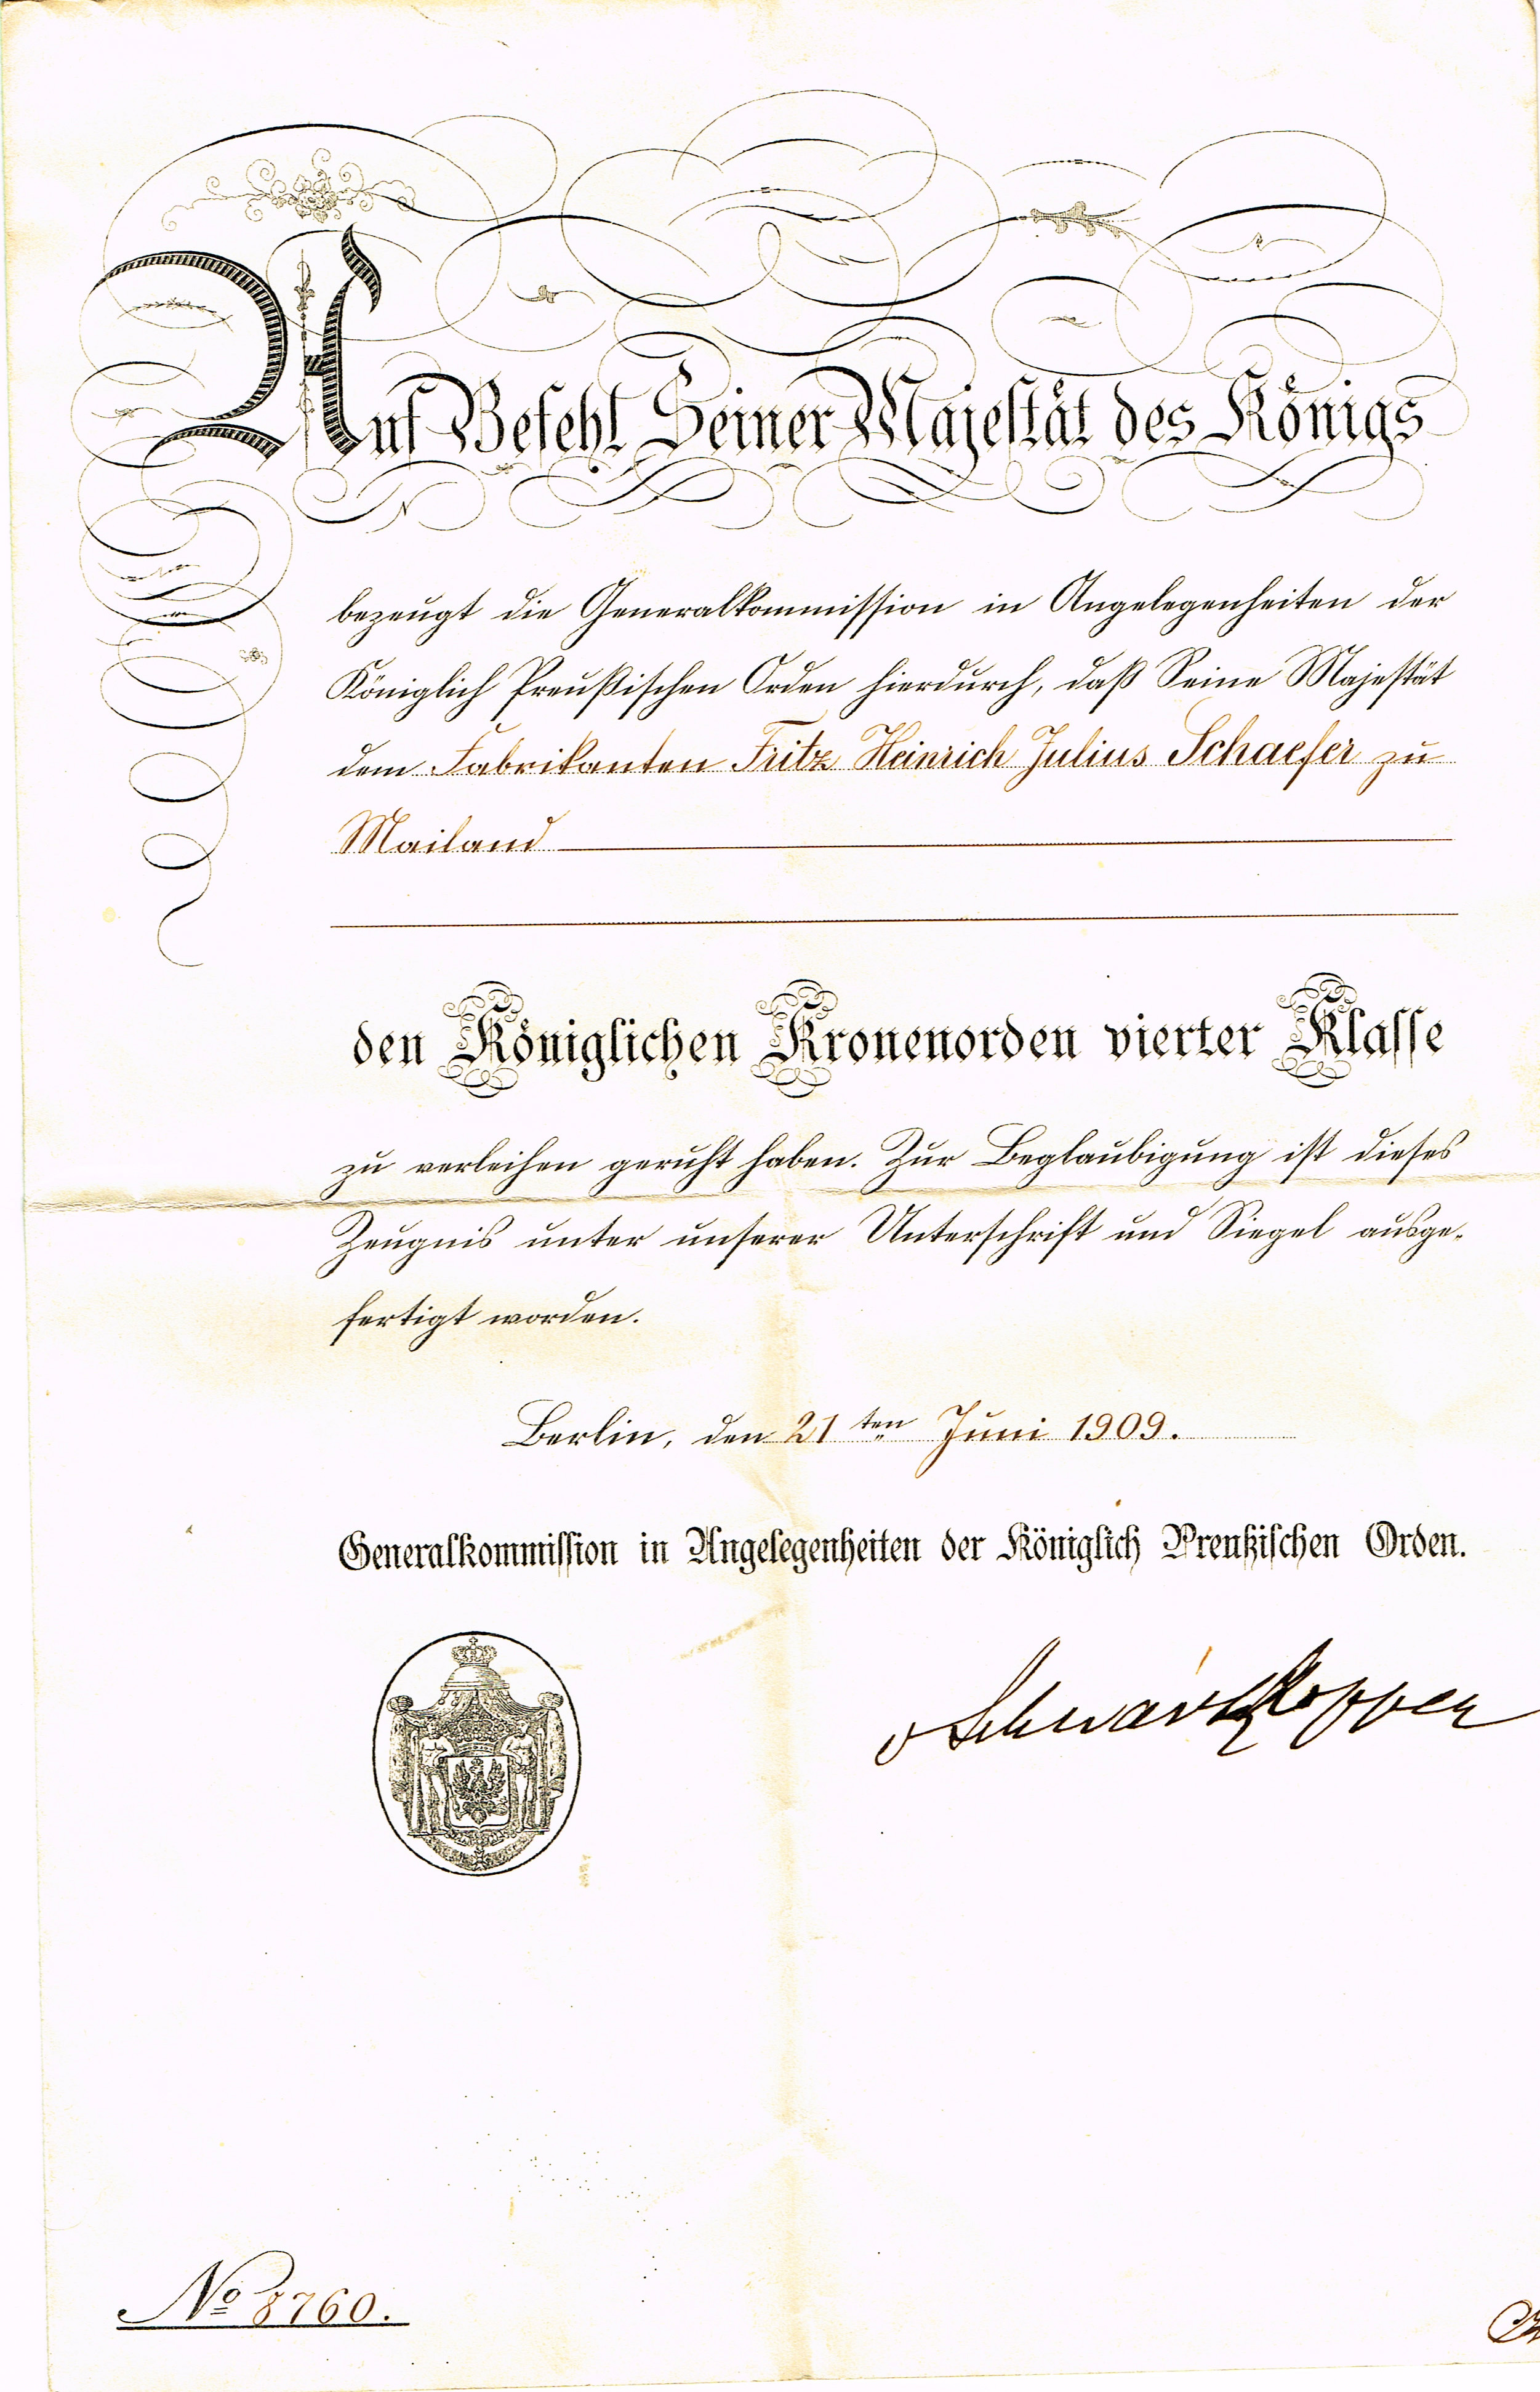 Auf Befehl Seiner Majestät des Königs
bezeugt die Generalkommission in Angelegenheiten der
Königlich Preußischen Orden hierdurch, daß Seine Majestät
dem Fabrikanten Fritz Heinrich Julius Schaefer zu
Mailand
den Königlichen Kronenorden vierter Klasse
zu verleihen geruht haben. Zur Beglaubigung ist dieses
Zeugnis unter unserer Unterschrift und Siegel ausge-
fertigt worden.
Berlin, den 21ten Juni 1909.
Generalkommission in Angelegenheiten der Königlich Preußischen Orden.
v Schwartzkoppen
No 8760.